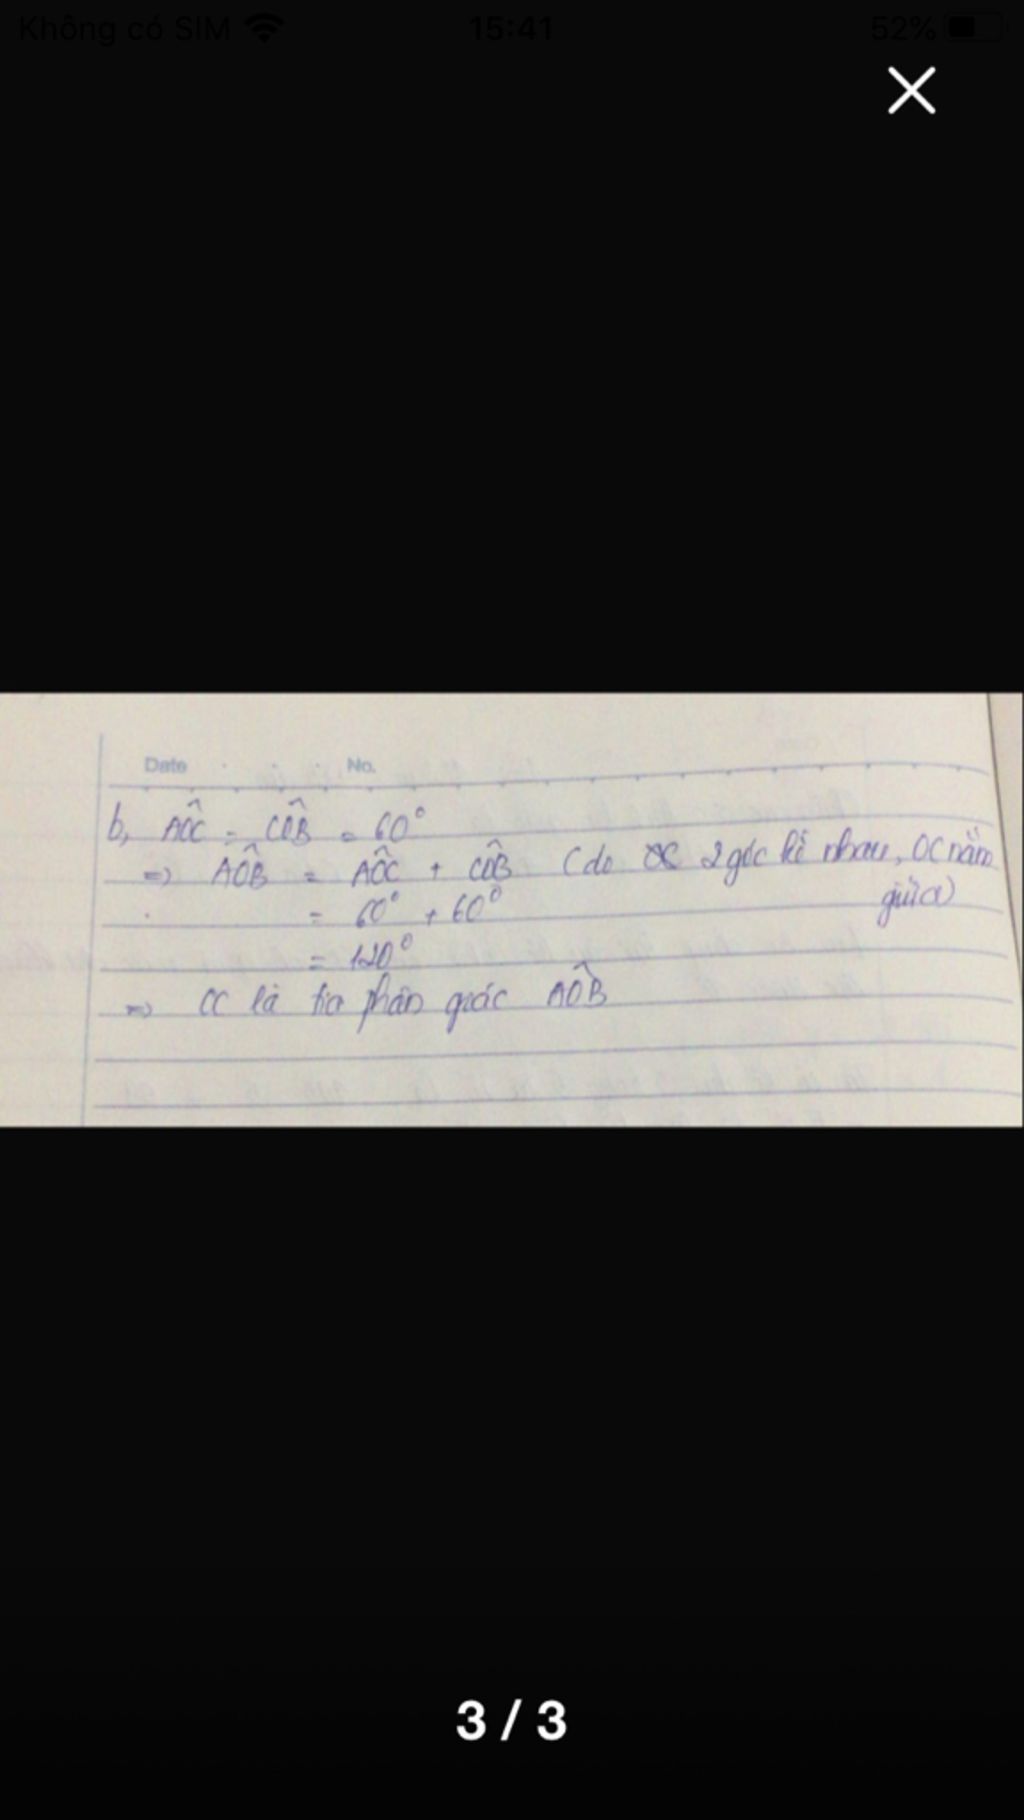 Không có SIM 15:41 52%
Date No.
b, AÔC = CÔB = 60°
=> AÔB = AÔC + CÔB (do 2 góc kề nhau, OC nằm
giữa)
= 60° + 60°
= 120°
=> OC là tia phân giác AÔB
3 / 3